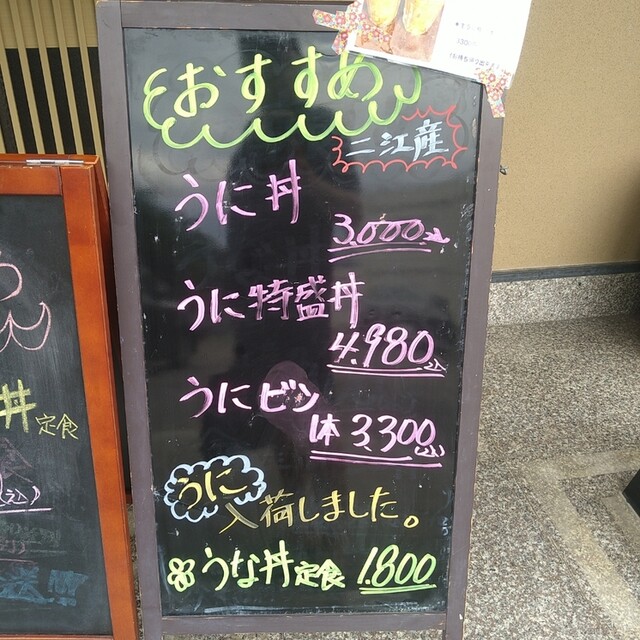 おすすめ
二江産
うに丼
3,000
うに特盛丼
4,980
うにビン
1本 3,300
うに
入荷しました。
うな丼定食 1,800
丼定食